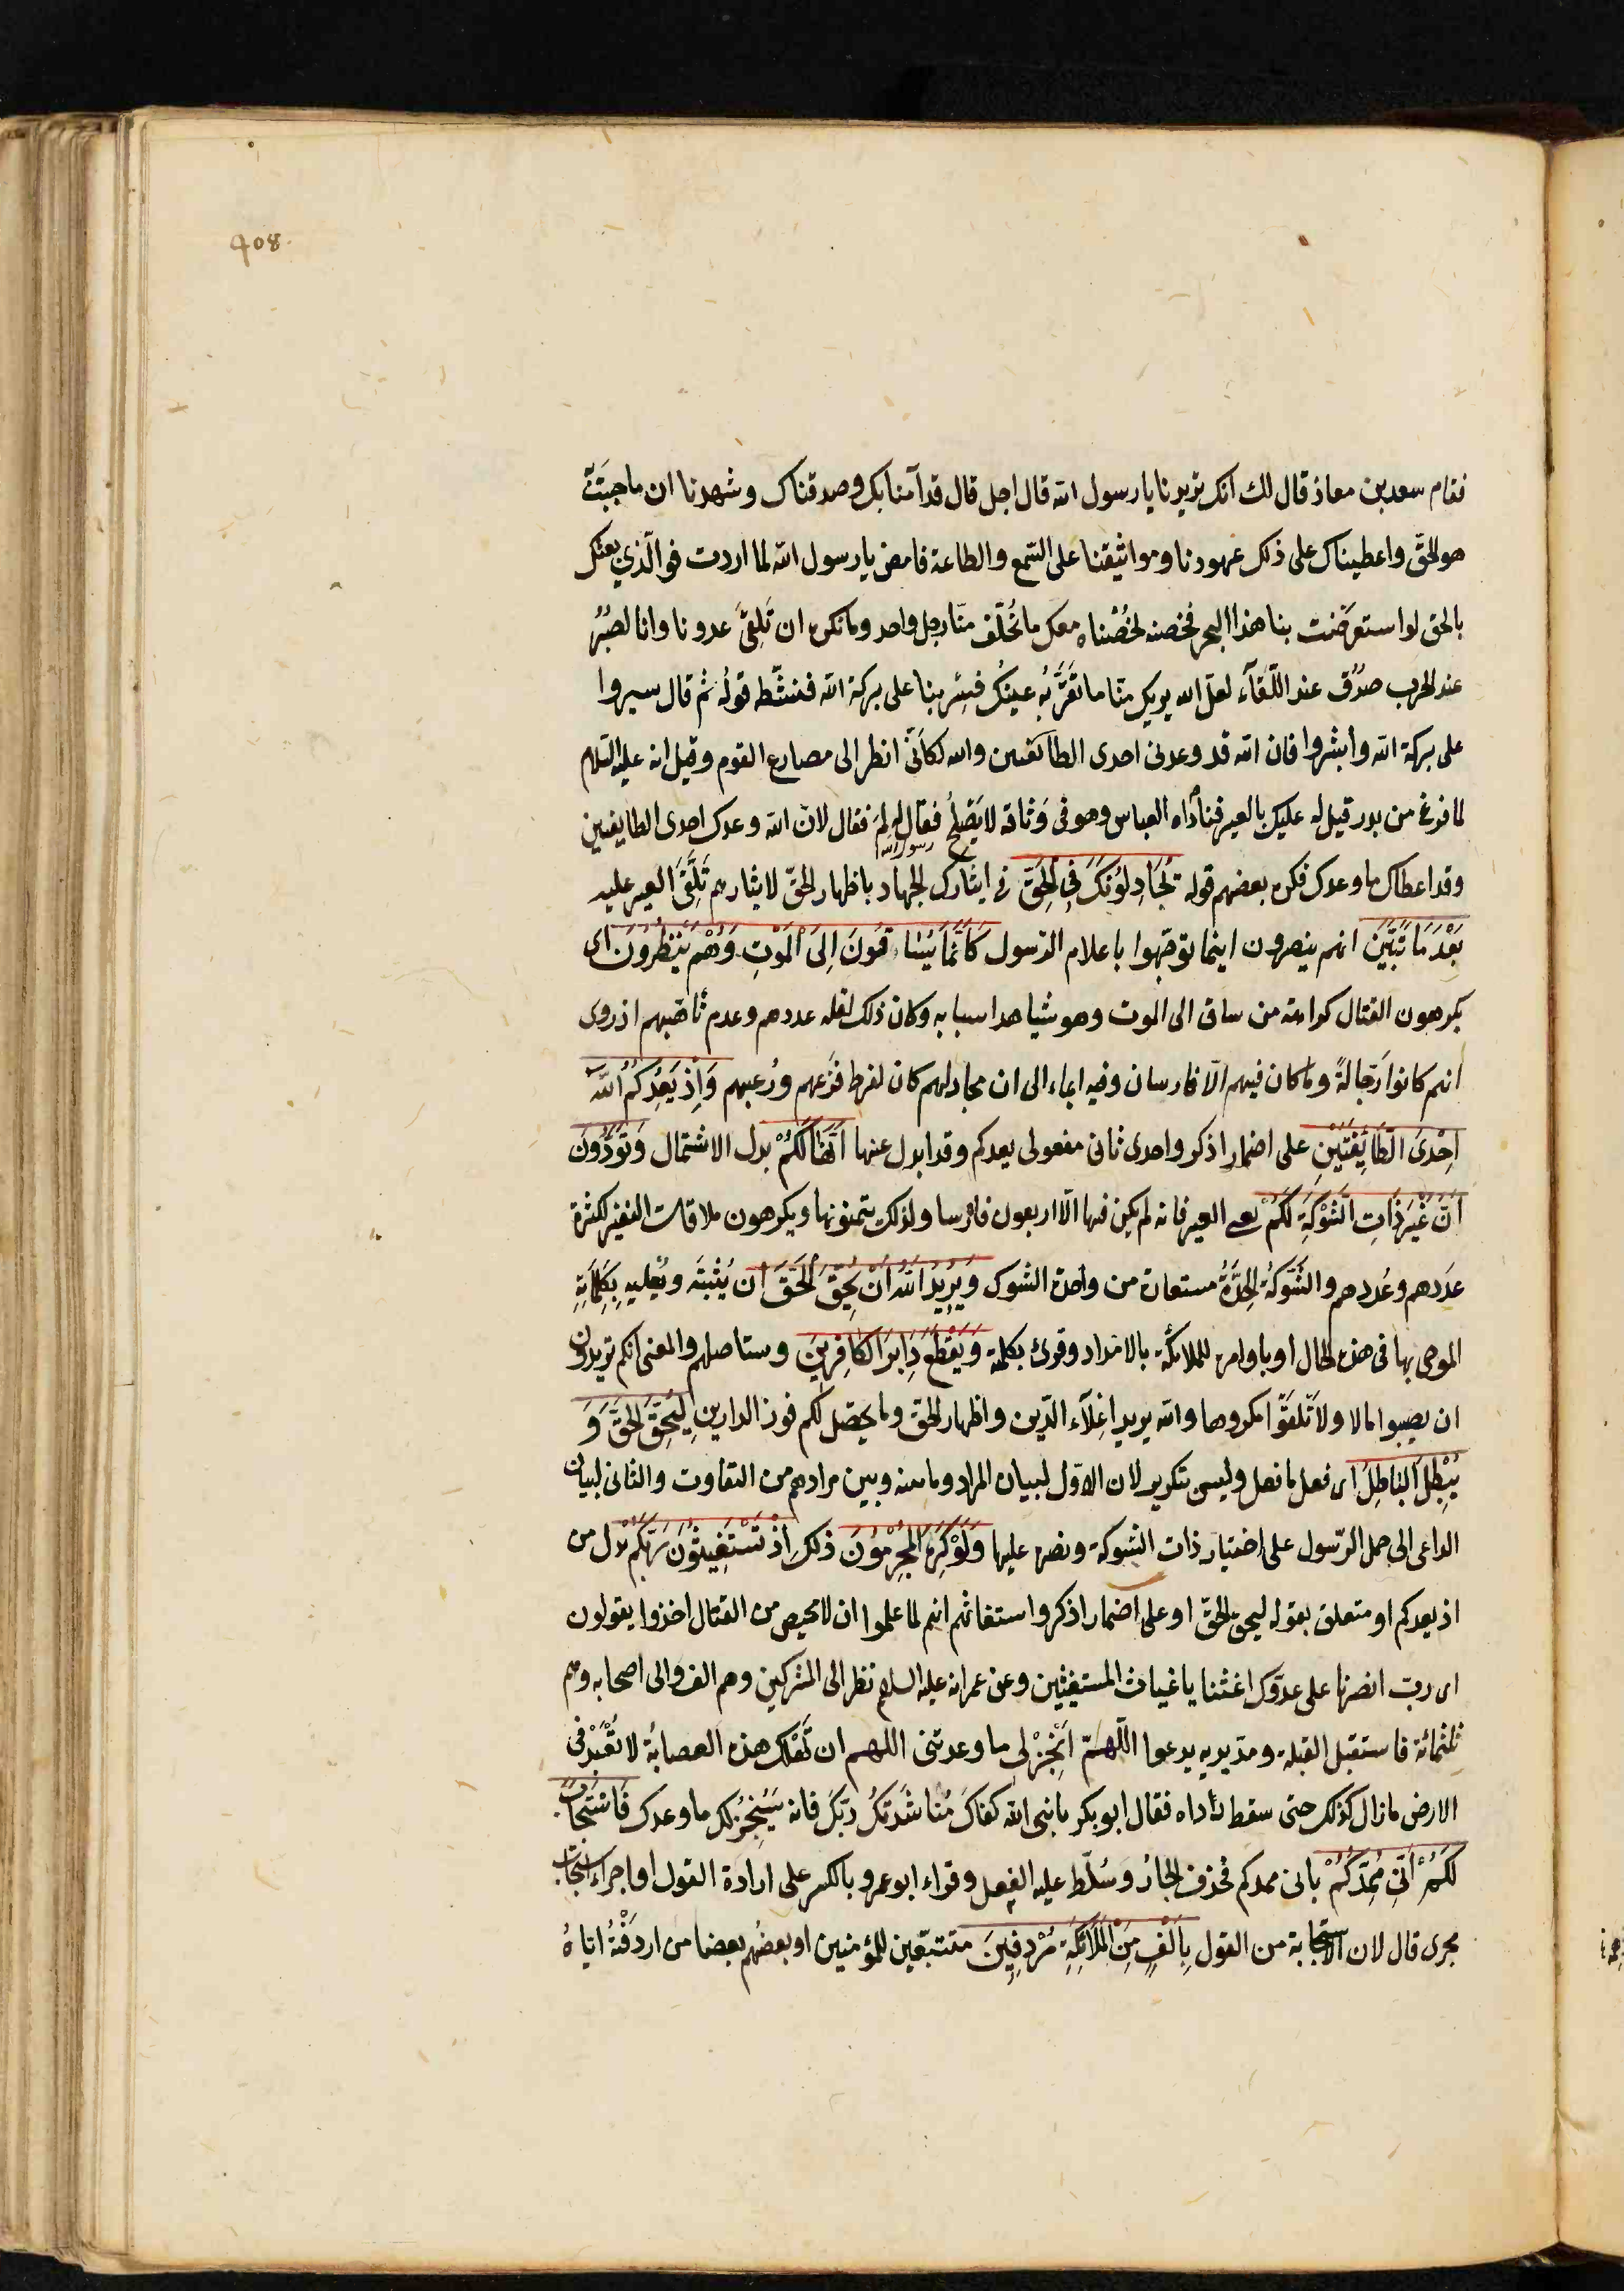 408
فقام سعد بن معاذ قال لك انك تريدنا يا رسول الله قال اجل قال قد آمنا بك وصدقناك وشهدنا ان ما جئت
هو الحق واعطيناك على ذلك عهودنا ومواثيقنا على السّمع والطاعة فامض يا رسول الله لما اردت فوالّذي بعثك
بالحق لو استعرضت بنا هذا البحر فخضته لخُضْناه معك ما تخلّف منّا رجل واحد وما نكره ان تَلقىَّ عدونا وانا لصُبُرٌ
عند الحرب صدُقٌ عند اللّقآء لعلّ الله يريك منّا ما تقرَُّ به عينك فسِر بنا على بركة الله فنشّطه قوله ثم قال سيروا
على بركة الله وأبشروا فان الله قد وعدنى احدى الطائفتين والله لكأنّى انظر الى مصارع القوم وقيل انه عليه السّلام
لما فرغ من بدر قيل له عليك بالعير فناداه العباس وهو فى وَثاقه لا يَصْلح فقال له رسول الله لِمَ فقال لانّ الله وعدك احدى الطايفتين
وقد اعطاك ما وعدك فكره بعضهم قوله يُجَادِلُوْنَكَ فِى الْحَقَّ فى ايثارك الجهاد باظهار الحقّ لايثارهم تَلَقّىَ العير عليه
بَعْدَ مَا تَبَيَّنَ انهم ينصرون اينما توجّهوا باعلام الرّسول كَاَنَّمَا يُسَاقُونَ اِلىَ الْمَوْتِ وَهُمْ يَنْظُرُونَ اى
يكرهون القتال كراهة من ساق الى الموت وهو شياهد اسبابه وكان ذلك لقلة عددهم وعدم تأهّبهم اذ روى
انهم كانوا رَجّالةً وما كان فيهم الّا فارسان وفيه ايماء الى ان مجادلهم كان لفرط فَزَعهم ورُعبهم وَاِذْ يَعِدُكُمُ اللهُ
اِحْدىَ الطَّائِفَتَيْنِ على اضمار اذكر واحدى ثانى مفعولى يعدكم وقد ابدل عنها اَنَّهَا لَكُمْ بدل الاشتمال وَتَوَدُّونَ
اَنَّ غَيْرَ ذَاتِ الشَّوْكَةِ لَكُمْ يعى العير فانه لم يكن فيها الّا اربعون فارسا ولذلك يتمنونها ويكرهون ملاقات النفير لكثرة
عَدَدهم وعُددهم والشَّوكةُ الحِدَّةُ مستعارة من واحدة الشوك وَيُرِيْدُ اللهُ اَنْ يُحِقَّ الْحَقَّ ان يُثبتَه ويُعليه بِكَلِمَاتِهِ
الموحى بها فى هذه الحال او باوامره للملائكة بالامداد وقرئ بكلمة وَيَقْطَعَ دَابِرَ الْكَافِرِينَ وستاصلهم والمعنى انكم تريدون
ان يصيبوا مالا ولا تَلْقَوْا مكروها والله يريد اِعْلاَء الدّين واظهار الحق وما يحصّل لكم فوز الدارين لِيُحِقَّ الْحَقَّ وَ
يُبْطِلَ الْبَاطِلَ اى فعل ما فعل وليس بتكرير لان الاوّل لبيان المراد وما بينه وبين مرادهم من التفاوت والثانى لبيان
الداعى الى حمل الرّسول على اختيار ذات الشوكة ونصره عليها وَلَوْ كَرِهَ الْمُجْرِمُوْنَ ذلك اِذْ تَسْتَغِيثُوْنَ رَبَّكُمْ بدل من
اذ يعدكم او متعلق بقوله ليحق الحق او على اضمار اذكر واستغاثتهم انهم لما علموا ان لا محيص من القتال اخذوا يقولون
اى ربّ انصرنا على عدوّك اغثنا يا غياث المستغيثين وعن عمر انه عليه السلام نظر الى المشركين وهم الف والى اصحابه وهم
ثلثمائة فاستقبل القبلة ومدّ يديه يدعوا اللّهمّ اَنْجِزْ لى ما وعدتنى اللهم ان تَهْلك هذه العصابةُ لا تُعْبَدْ فى
الارض ما زال كذلك حتى سقط رداءه فقال ابو بكر يا نبى الله كفاك مُناشَدَتكُ ربّكَ فانه سَيُنجزُ لك ما وعدك فَاسْتَجَابَ
لَكُمْ اَنِّى مُمِدُّكُمْ بانى ممدكم فحُذف الجارُ وسُلّط عليه الفعل وقراء ابو عمرو بالكسر على ارادة القول او اجراء استجاب
مجرى قال لان الاستجابة من القول بِاَلْفٍ مِنَ الْمَلاَئِكَةِ مُرْدِفِينَ متتبّعين للمؤمنين او بعضُهم بعضا من اردفْتُه اياهُ